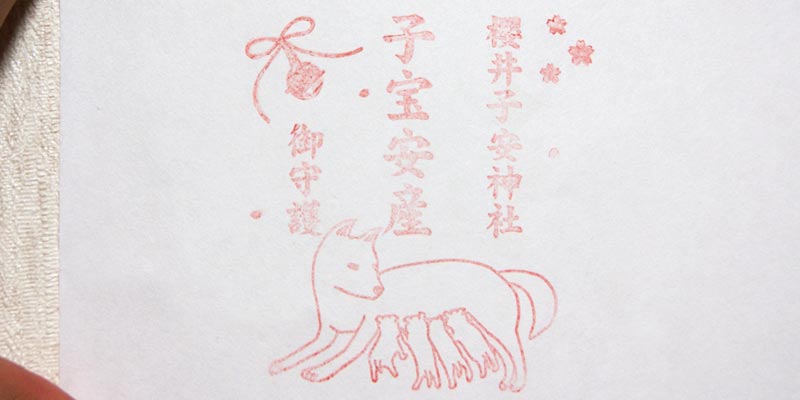 櫻井子安神社
子宝安産
御守護